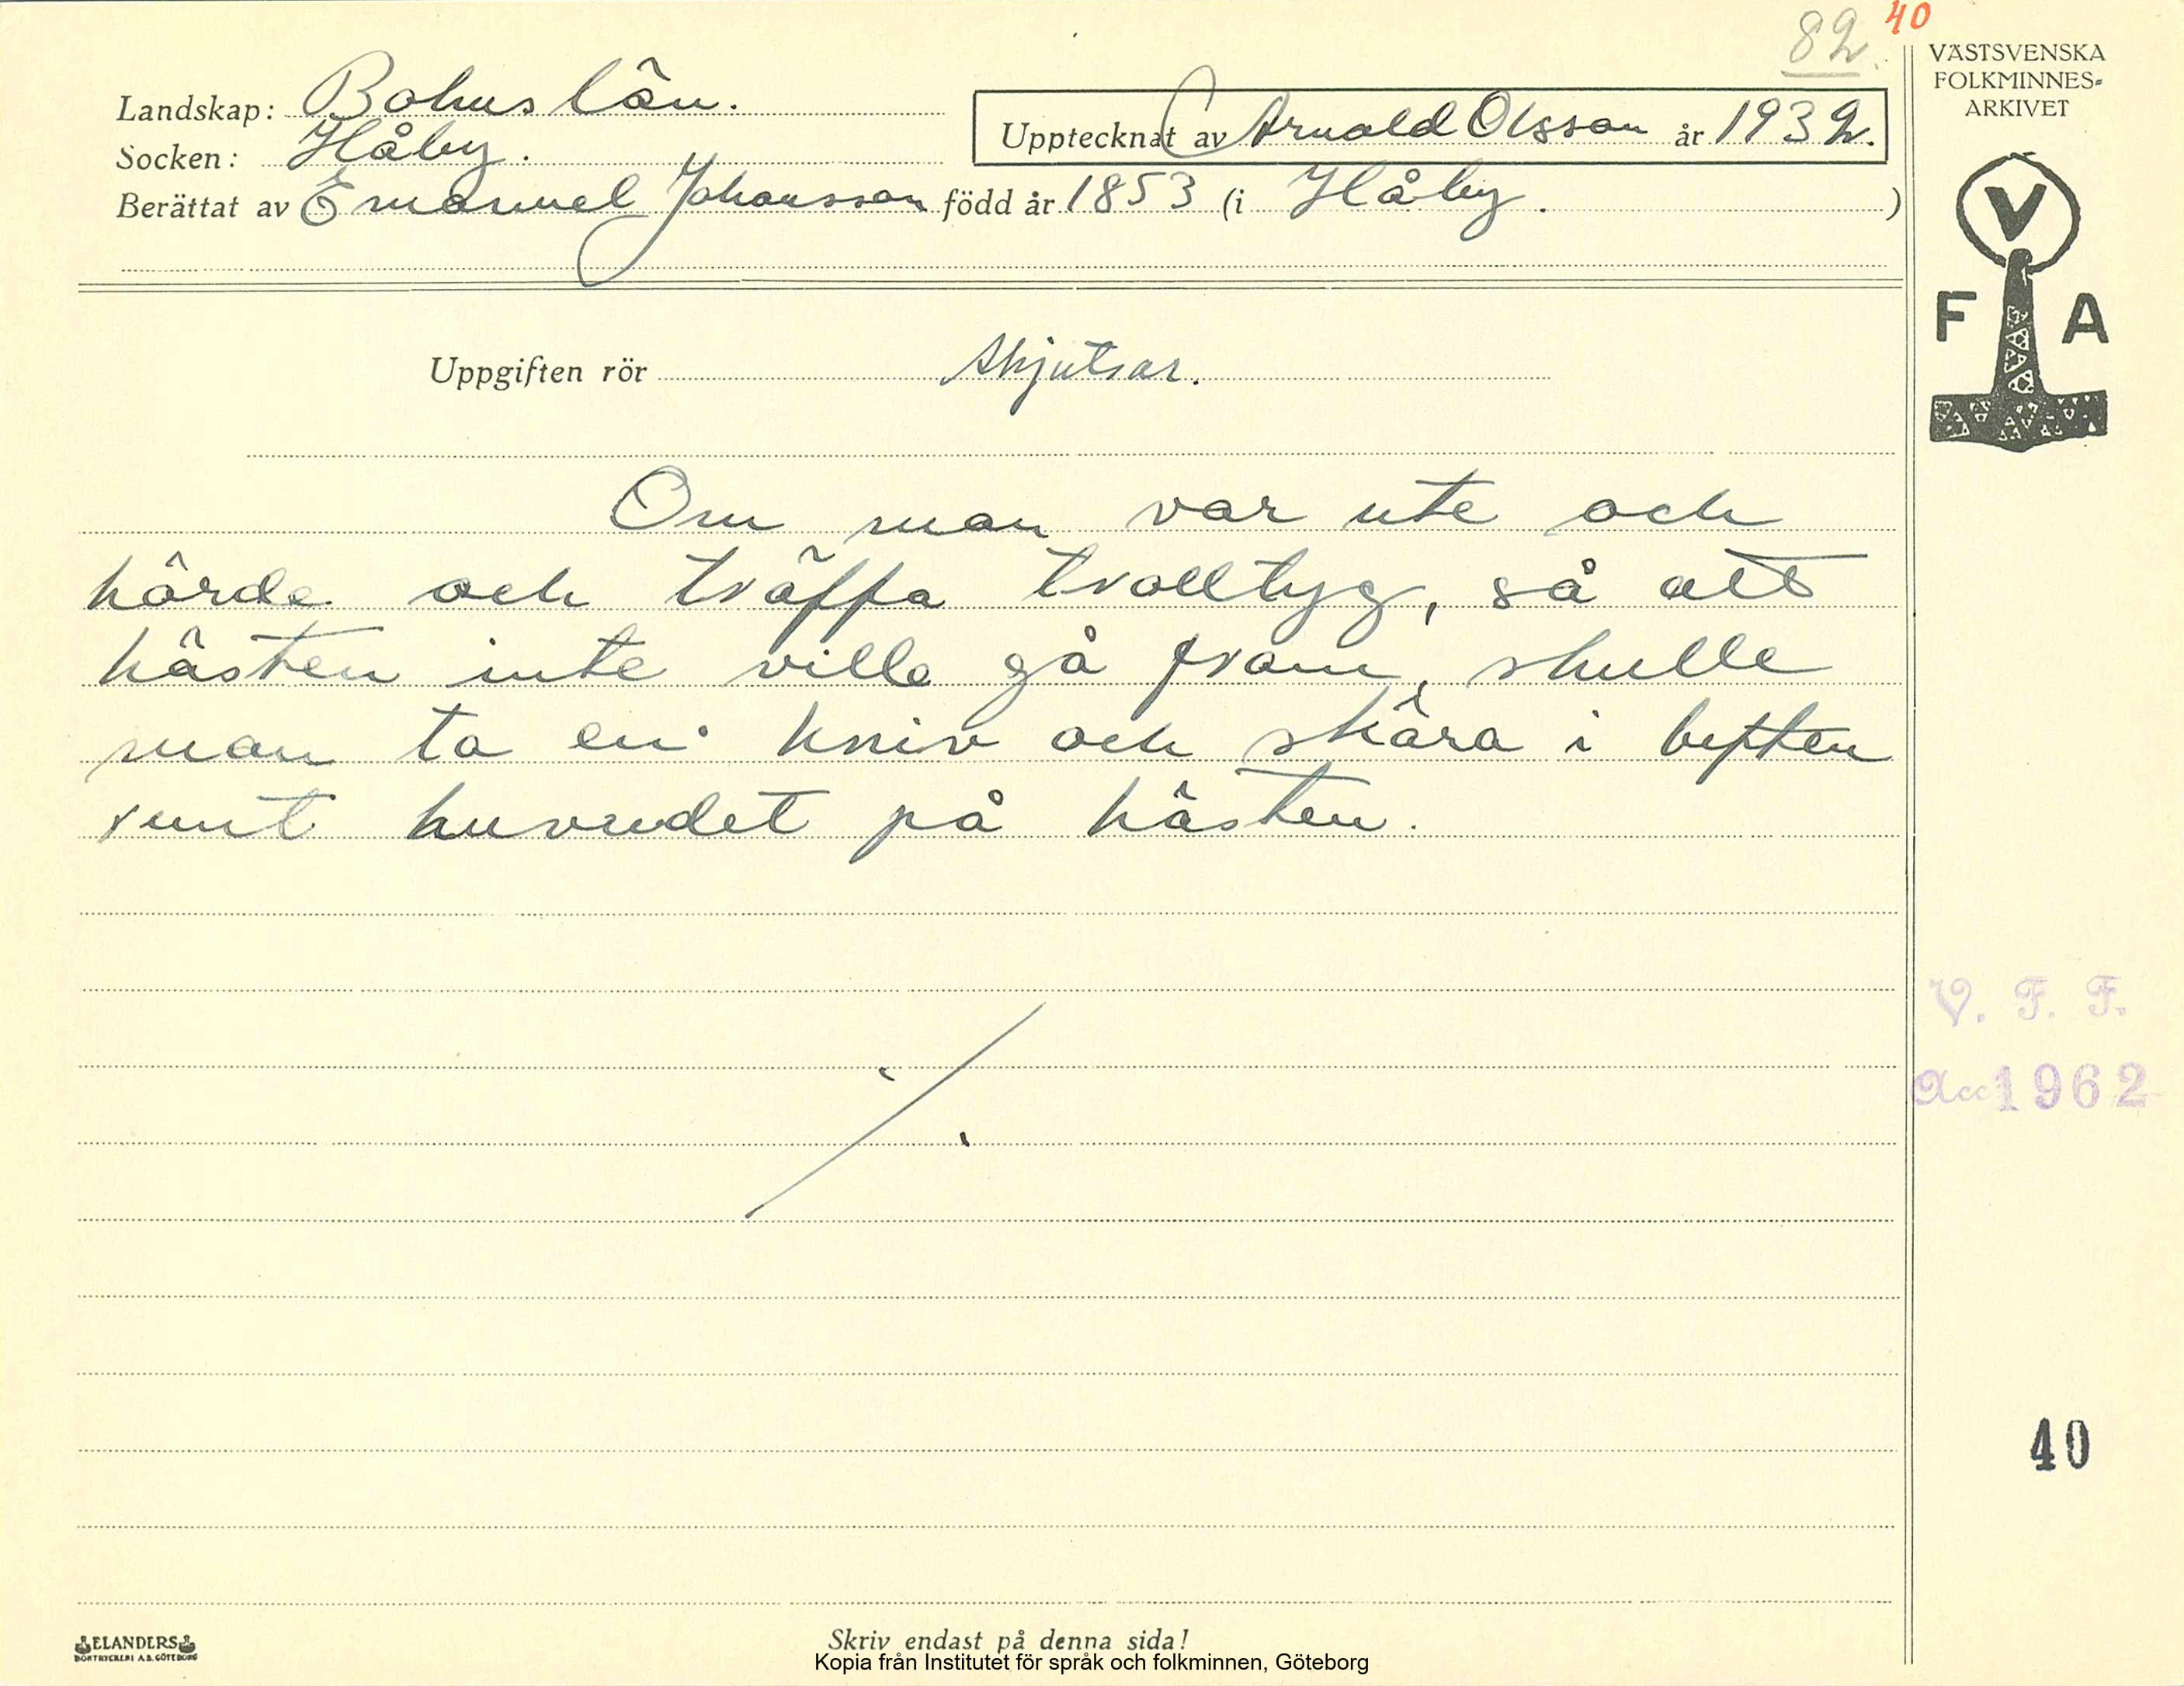 82. 40
VÄSTSVENSKA
FOLKMINNES=
ARKIVET
Landskap: Bohuslän.
Upptecknat av Arnold Olsson år 1932.
Socken: Håby.
Berättat av Emanuel Johansson född år 1853 (i Håby. )
V
F A
Uppgiften rör Skjutsar.
Om man var ute och
körde och träffa trolltyg, så att
hästen inte ville gå fram, skulle
man ta en kniv och skära i luften
runt huvudet på hästen.
V. F. F.
Acc 1962
40
ELANDERS
BOKTRYCKERI A.B. GÖTEBORG
Skriv endast på denna sida!
Kopia från Institutet för språk och folkminnen, Göteborg